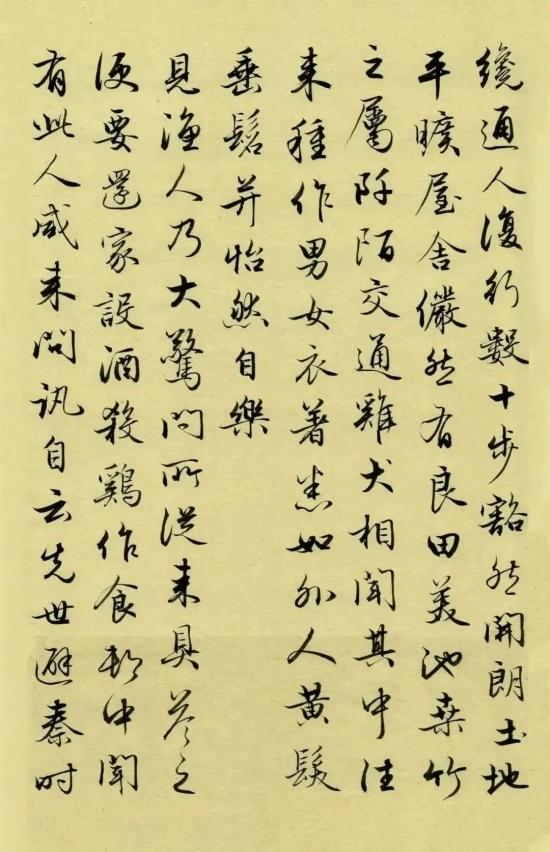 纔通人復行數十步豁然開朗土地
平曠屋舍儼然有良田美池桑竹
之屬阡陌交通雞犬相聞其中往
来種作男女衣著悉如外人黄髮
垂髫并怡然自樂
見漁人乃大驚問所從来具答之
便要還家設酒殺鷄作食村中聞
有此人咸来問訊自云先世避秦時